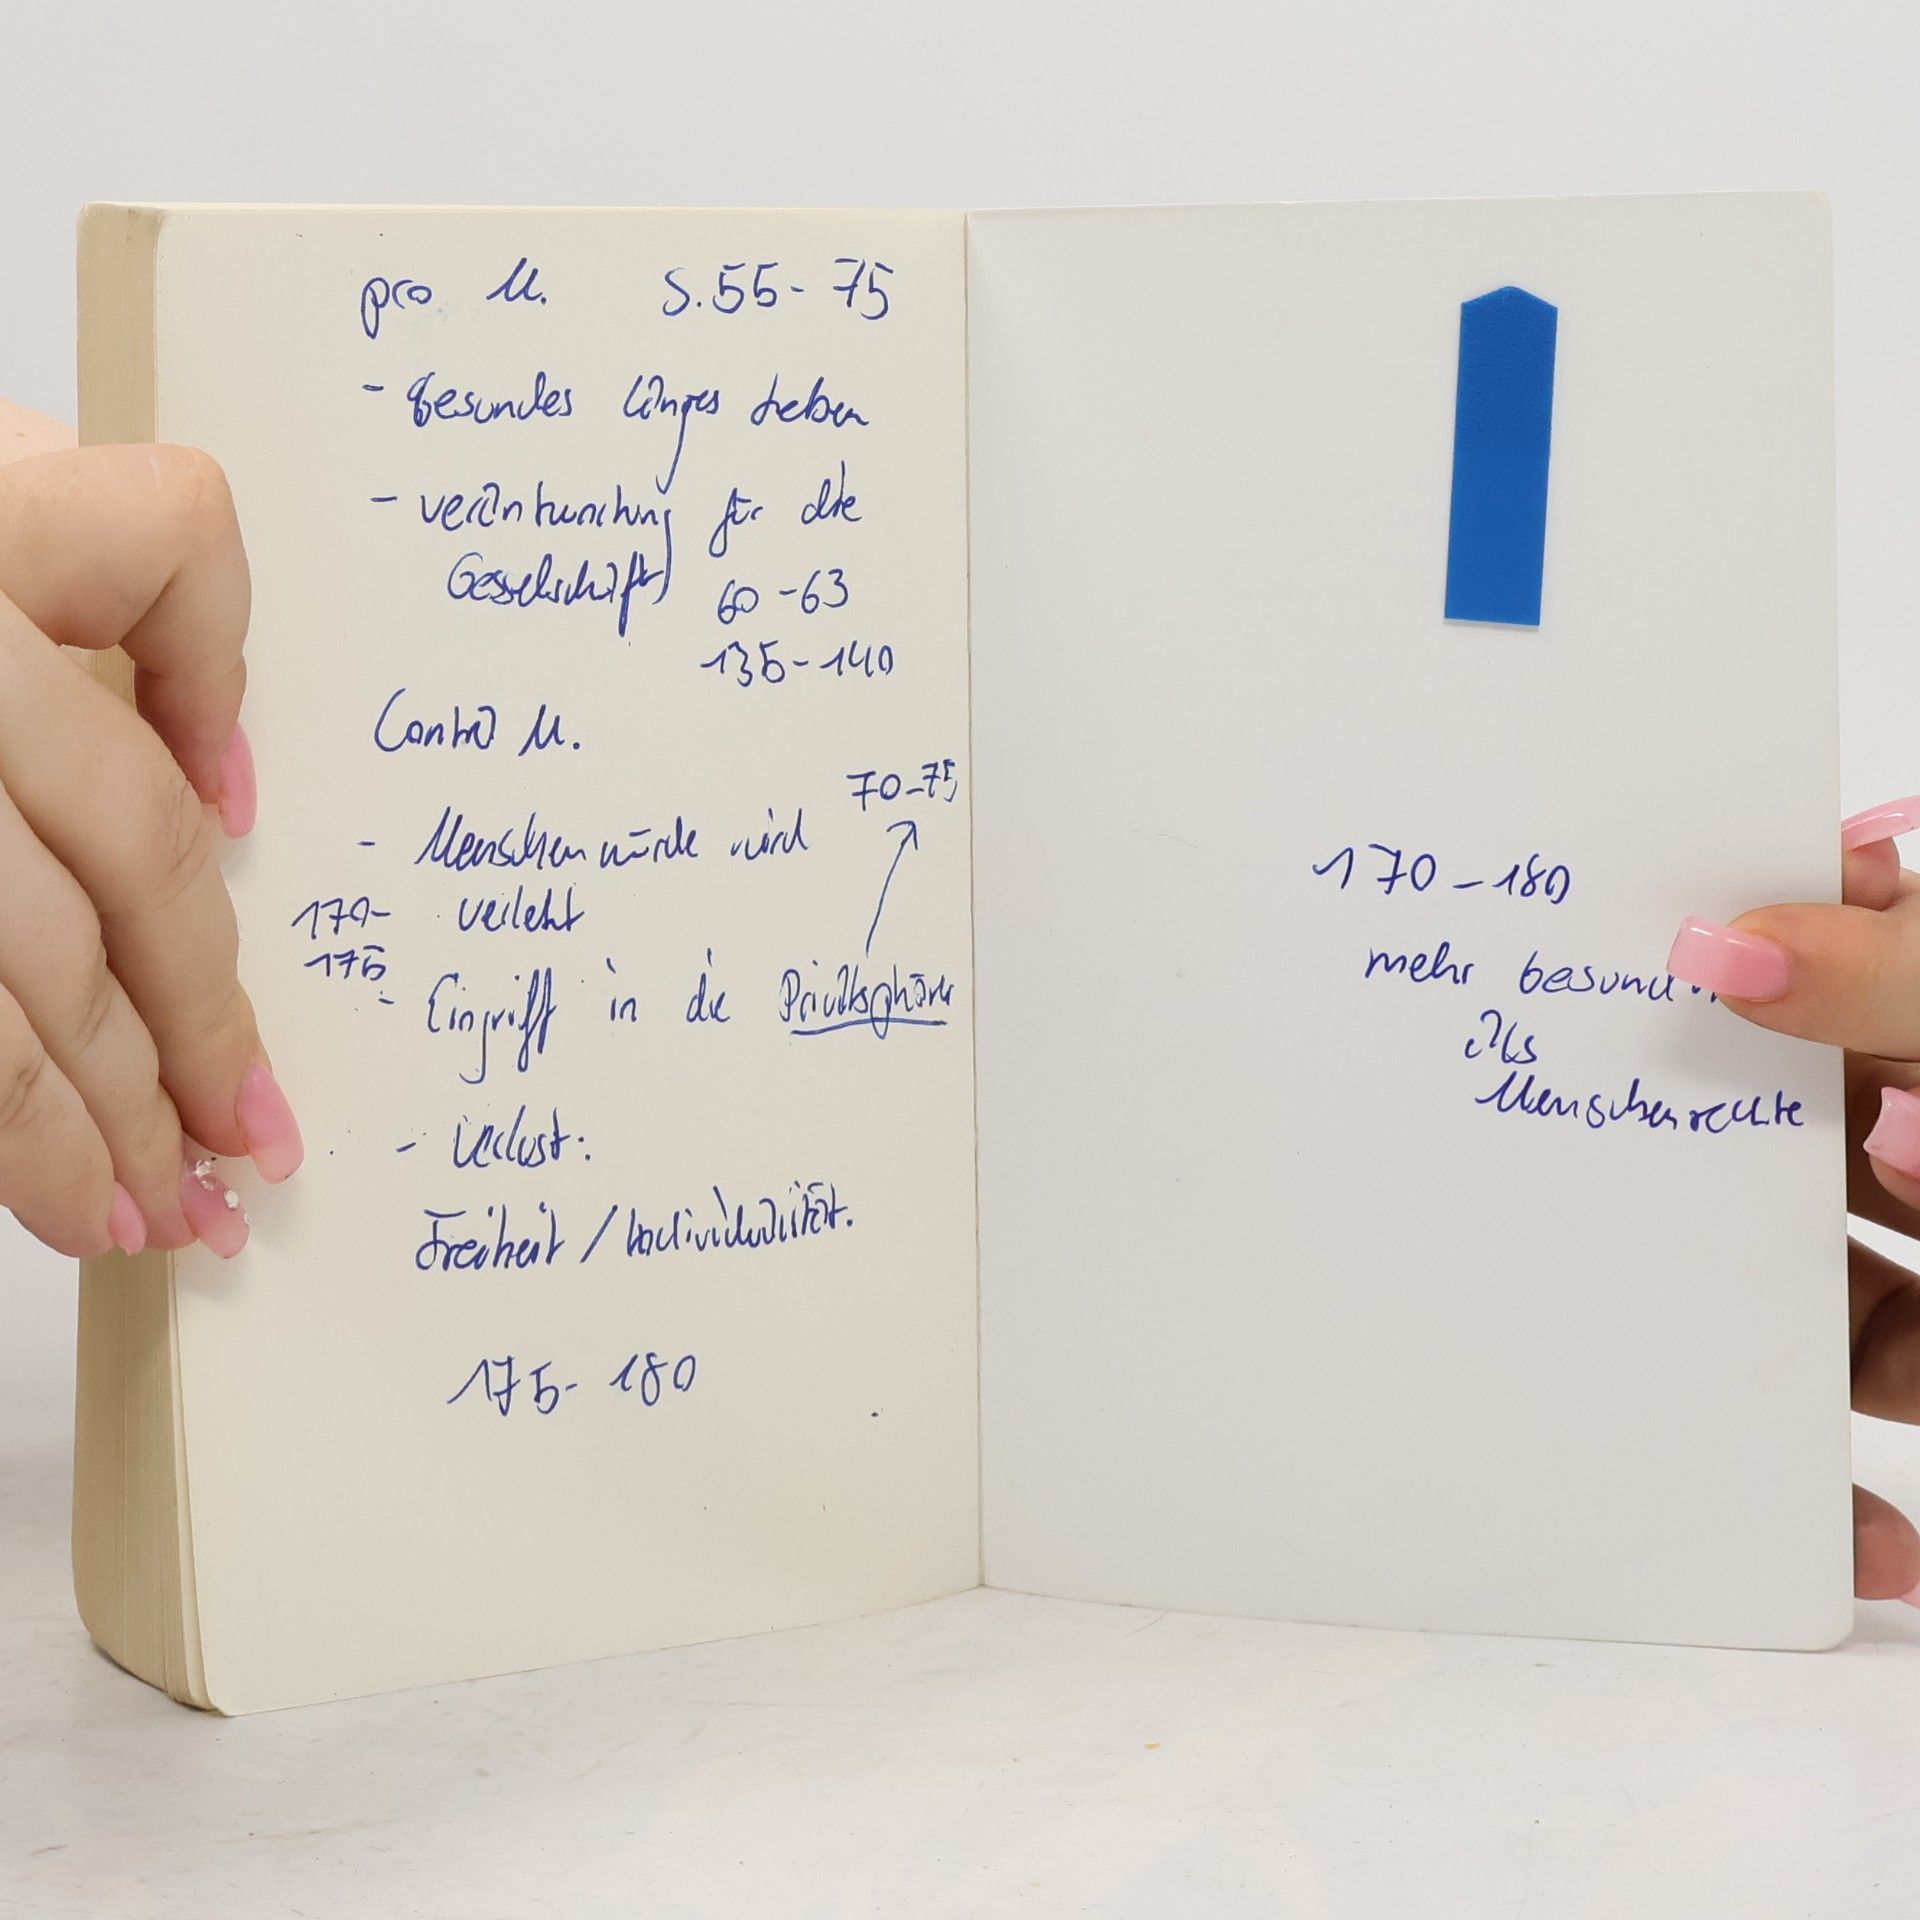 pro M. S. 55 - 75
- gesundes langes Leben
- verantwortung für die
Gesselschaft 60 - 63
135 - 140
Contra M.
70 - 75
- Menschenwürde wird
170- verletzt
175
- Eingriff in die Privatsphäre
- Verlust:
Freiheit / Individualität.
175 - 180
170 - 180
mehr
als
Menschenrechte